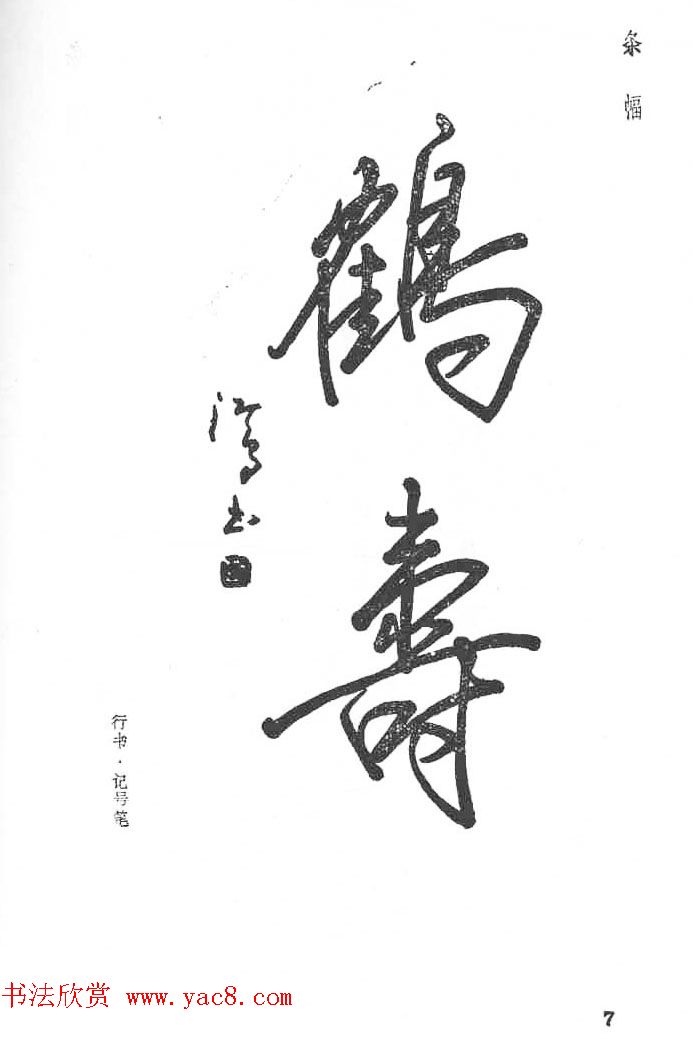 条幅
鶴壽
书
行书·记号笔
书法欣赏 www.yac8.com
7